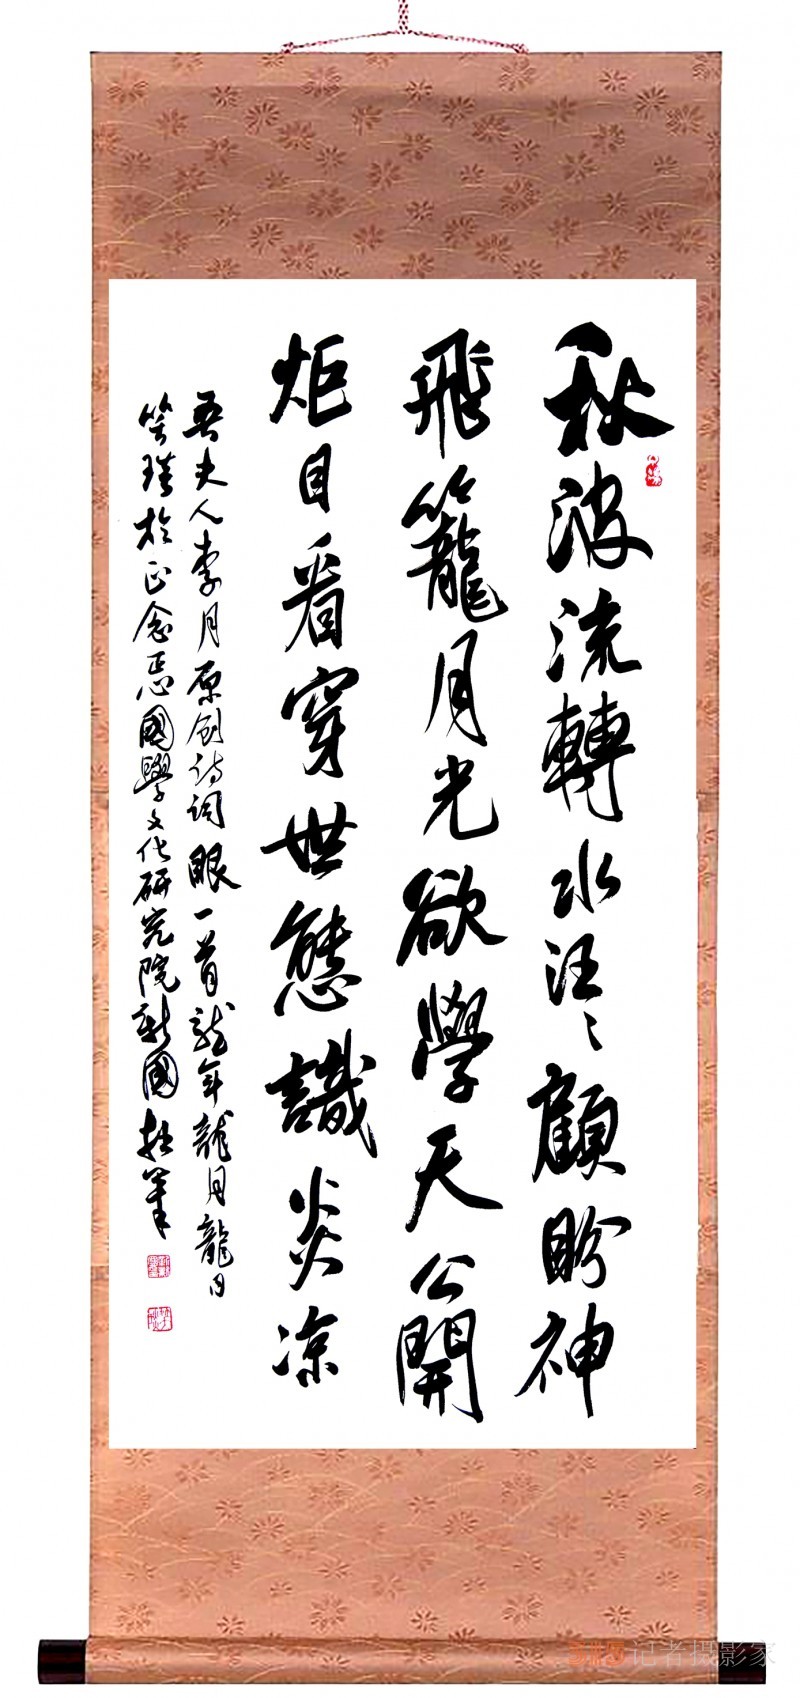 秋波流轉水汪〻顧盼神
飛籠月光欲學天公開
炬目看穿世態識炎凉
吾夫人李月原创诗词眼一首龍年龍月龍日
於正念正心國學文化研究院國拙筆
记者摄影家